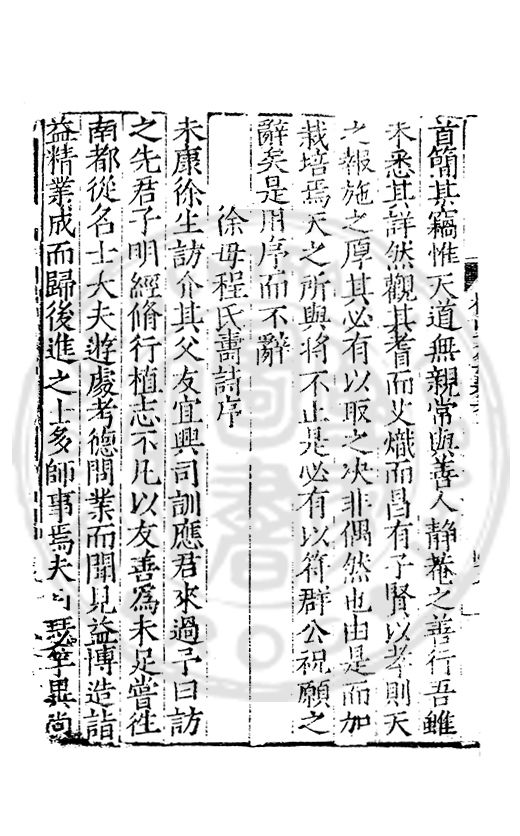 首簡其竊惟天道無親常與善人靜菴之善行吾雖
未悉其詳然觀其耆而艾熾而昌有子賢以孝則天
之報施之厚其必有以取之决非偶然也由是而加
栽培焉天之所與將不止是必有以符群公祝願之
辭矣是用序而不辭
徐母程氏壽詩序
永康徐生訪介其父友宜興司訓應君來過予曰訪
之先君子明經脩行植志不凡以友善為未足嘗徃
南都從名士大夫遊處考德問業而聞見益博造詣
益精業成而歸後進之士多師事焉夫 琴瑟異尚